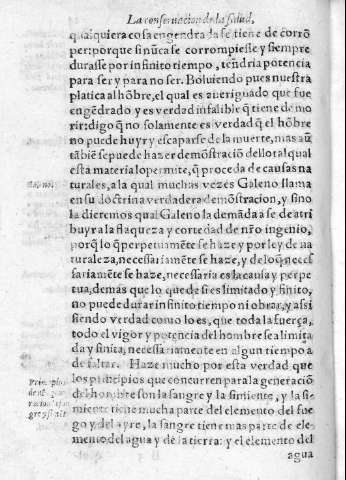 La conseruacion de la salud,
qualquiera cosa engendra la se tiene de corrõ
per: porque si nũca se corrompiesse y siempre
durasse por infinito tiempo, tẽdria potencia
para ser y para no ser. Boluiendo pues nuestra
platica al hõbre, el qual es aueriguado que fue
engẽdrado y es verdad infalible q̃ tiene de mo
rir: digo q̃ no solamente es verdad q̃ el hõbre
no puede huyr y escaparse de la muerte, mas aũ
tãbiẽ se puede hazer demõstraciõ dello tal qual
esta materia lo permite, q̃ proceda de causas na
turales, a la qual muchas vezes Galeno llama
en su doctrina verdadera demõstracion, y sino
la dieremos qual Galeno la demãda a se de atri
buyr a la flaqueza y cortedad de nr̃o ingenio,
porq̃ lo q̃ perpetuamẽte se haze y por ley de na
turaleza, necessariamẽte se haze, y de lo q̃ neces
sariamẽte se haze, necessaria es la causa y perpe
tua, demás que lo que de si es limitado y finito,
no puede durar infinito tiempo ni obrar, y assi
siendo verdad como lo es, que toda la fuerça,
todo el vigor y potencia del hombre sea limita
da y finita, necessariamente en algun tiempo a
de faltar. Haze mucho por esta verdad que
los principios que concurren para la generaciõ
del hombre son la sangre y la simiente, y la si=
miente tiene mucha parte del elemento del fue
go y del ayre, la sangre tiene mas parte de ele=
mento del agua y de la tierra: y el elemento del
agua
Principios